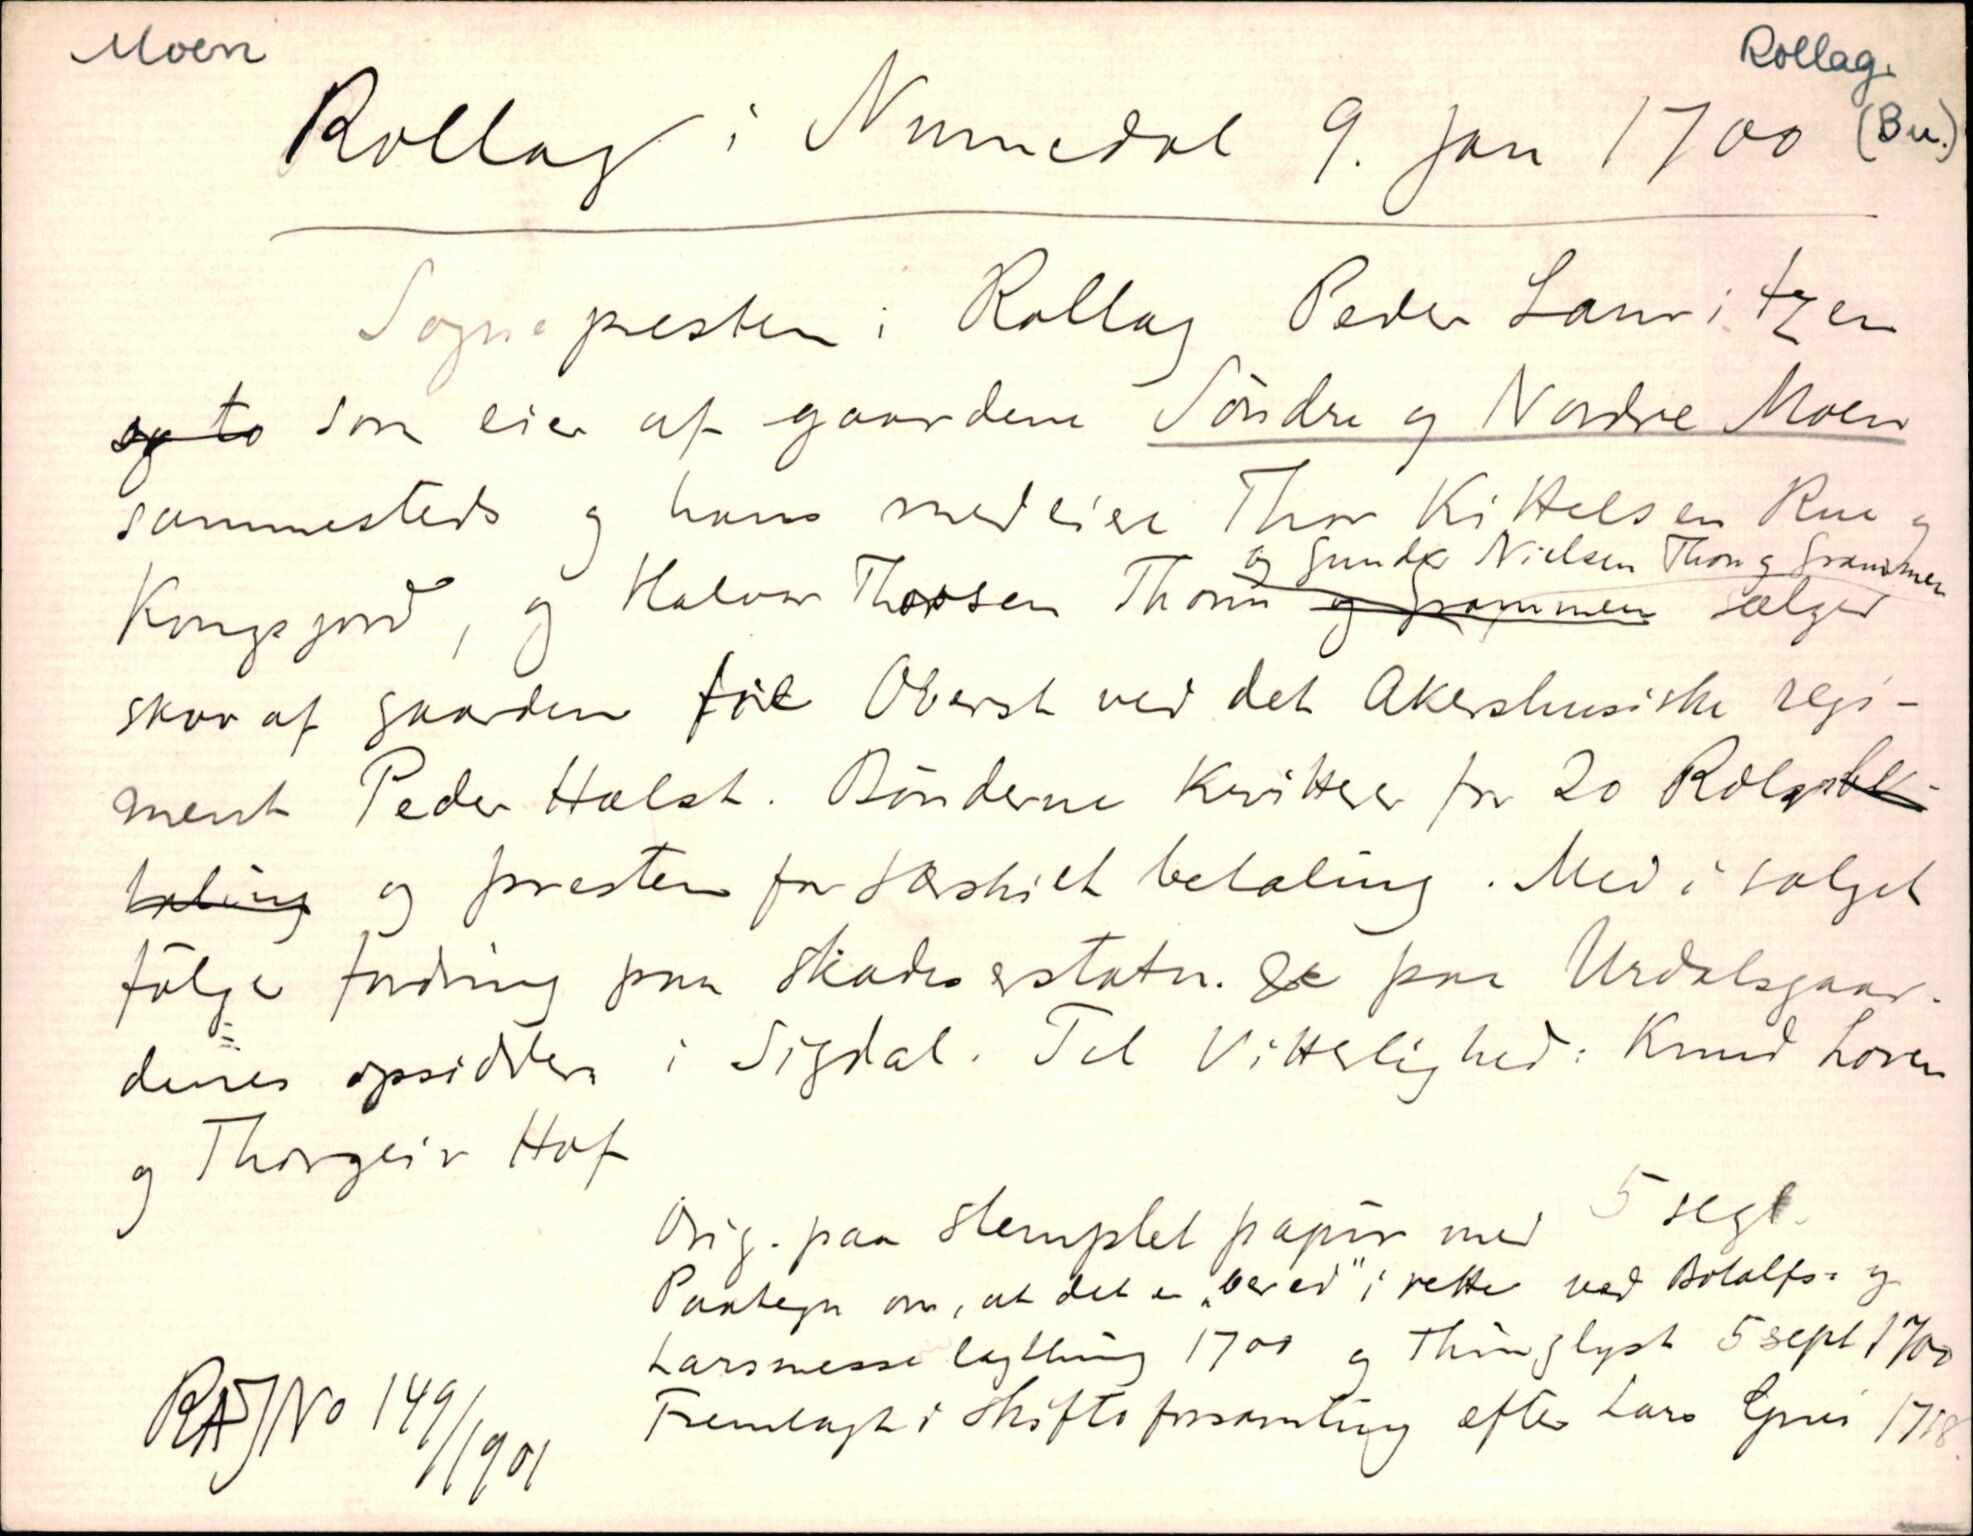 Moen
Rollag
(Bu.)
Rollag i Numedal 9. Jan 1700
Sognepresten i Rollag Peder Lauritzen
og to som eier af gaardene Söndre og Nordre Moen
sammesteds og hans medeiere Thor Kittelsen Rue og
og Gunder Nielsen Thon og Grammen
Kongsjord, og Halvor Thorsen Thonn og Grammen sælger
skov af gaarden til Oberst ved det Akershusiske regi-
ment Peder Halst. Bönderne kvitterer for 20 Rdlr be-
taling og presten for særskilt betaling. Med i salget
fölger fordring paa skadeserstatn. paa Urdalsgaar-
denes opsiddere i Sigdal. Til Vitterlighed: Knud Loven
og Thorgeir Hof
Orig. paa stemplet papir med 5 segl.
Paategn om, at det er "læred" i rette ved Botolfs- og
Larsmesse lagthing 1700 og thinglyst 5 sept 1700
Fremlagt i skiftesforsamling efter Lars Gren 1718.
RA JNo 149/1901